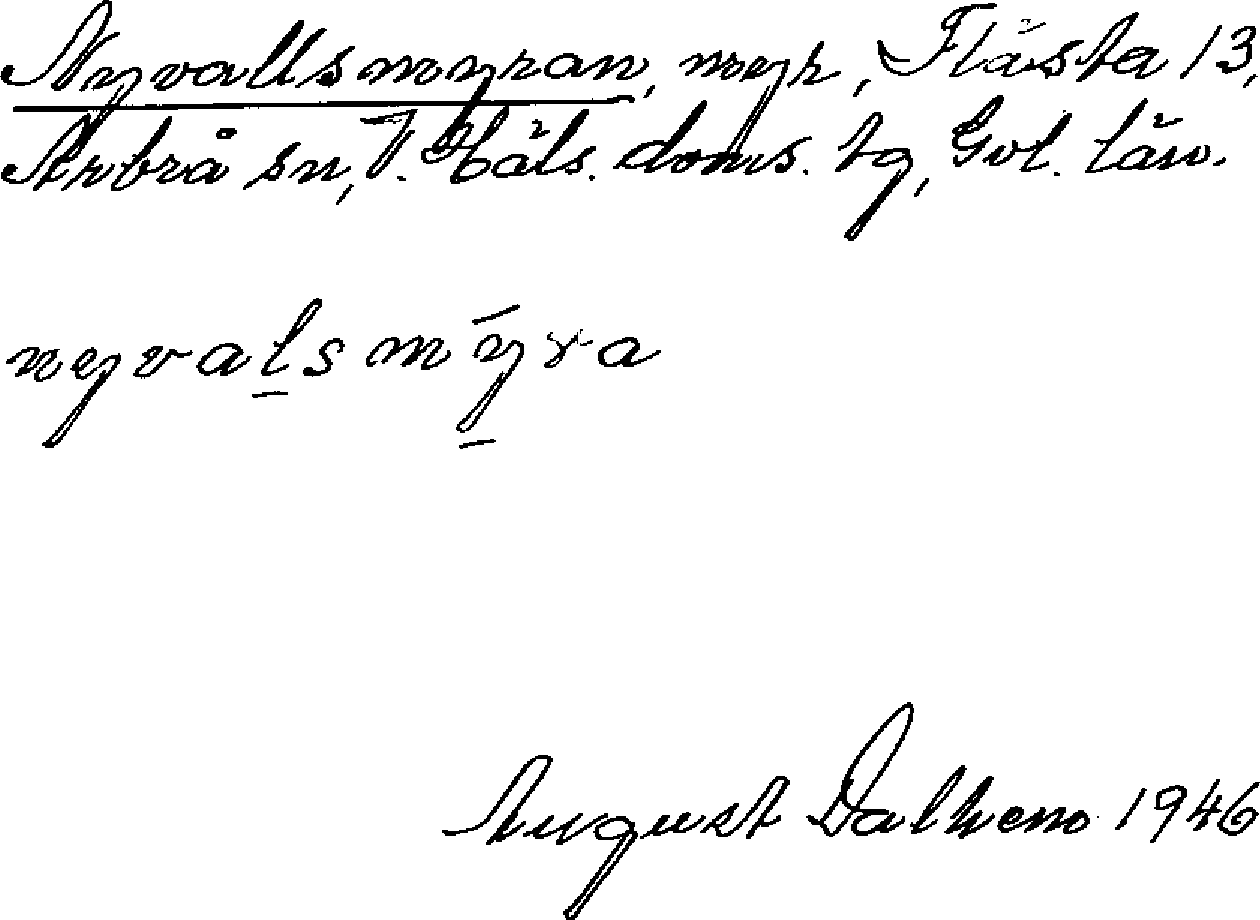 Nyvallsmyran, myr, Flästa 13,
Arbrå sn, V. Häls. doms. tg, Gvl. län.
nyvalsmýra
August Dalhem 1946